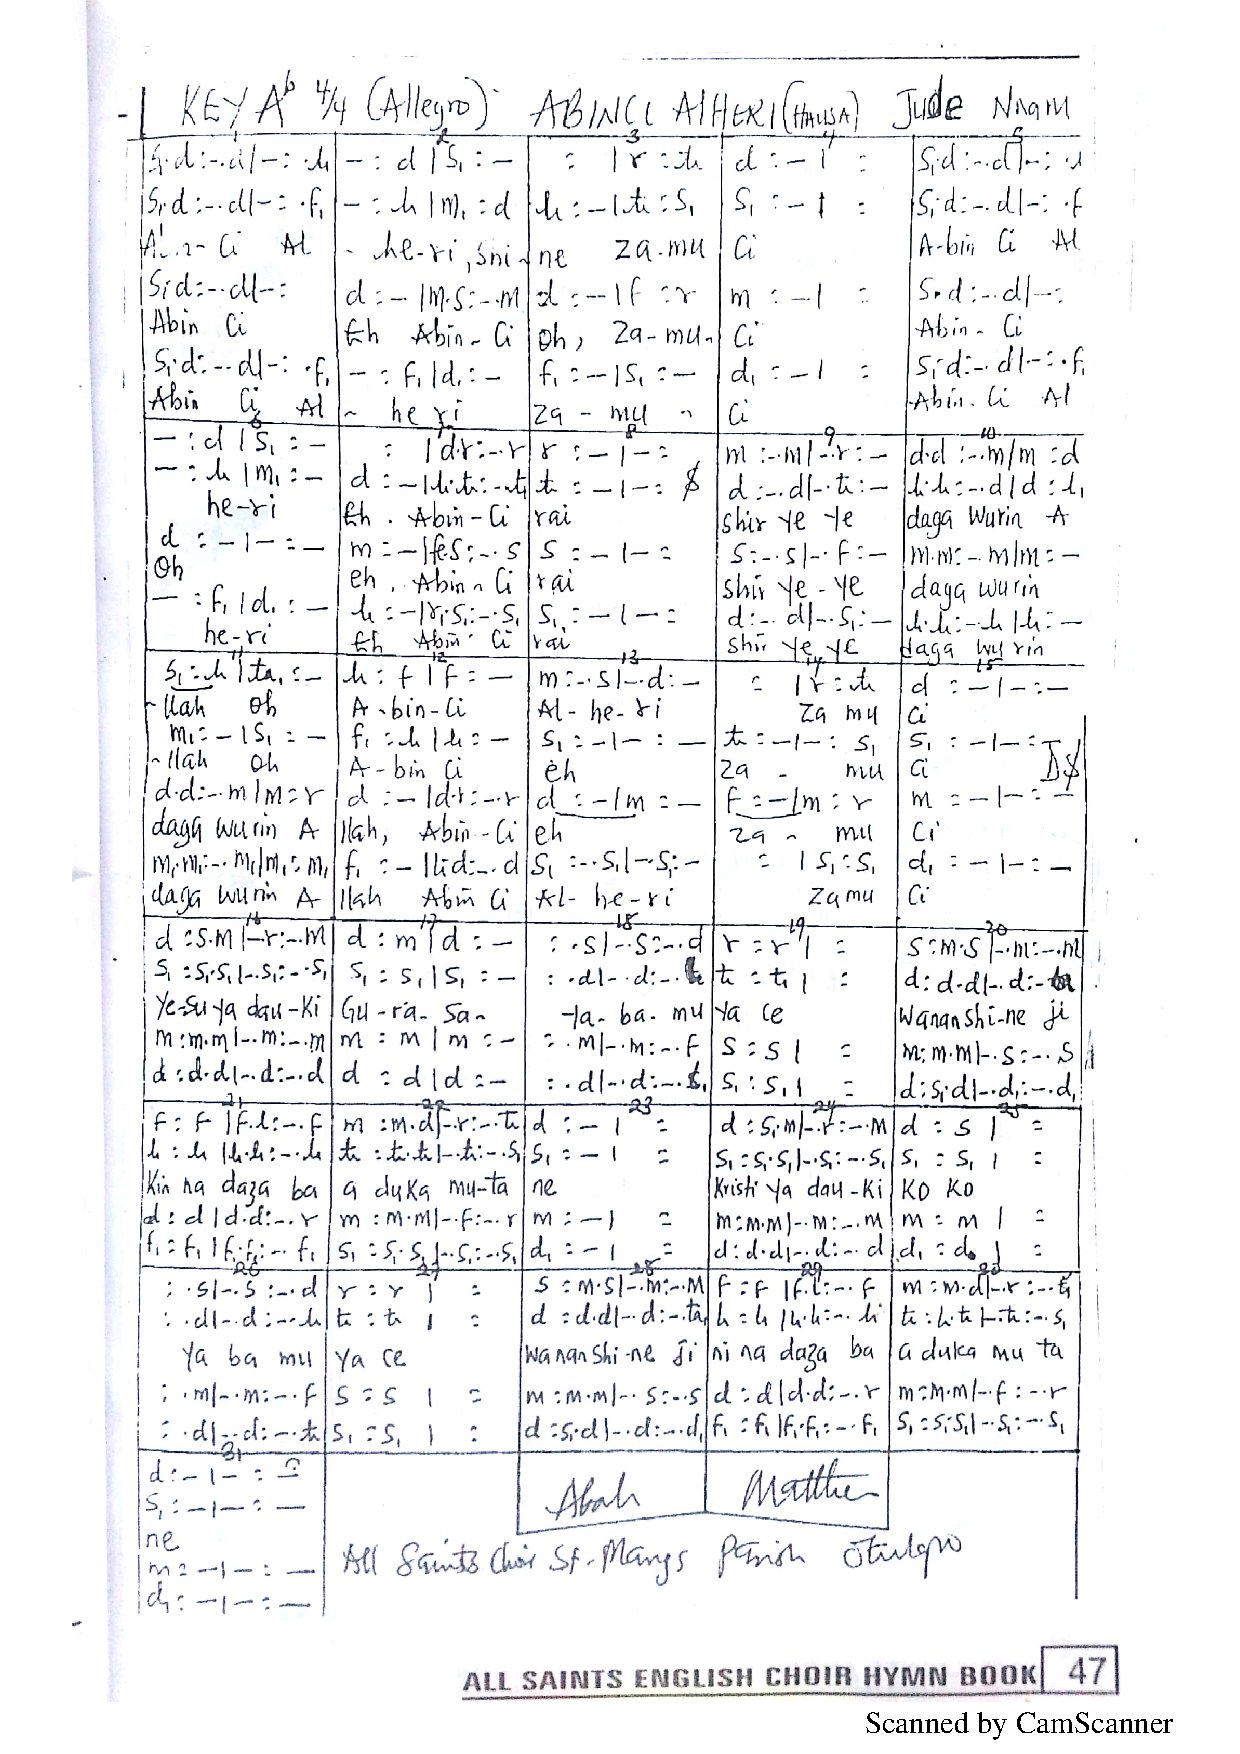 KEY Ab 4/4 (Allegro) ABINCI AlHERI (HAUSA) Jude Nnam
2 3 4 5
S₁.d:-.d|-:.l₁ -:d|S₁:- : |r:t₁ d:-| : S₁.d:-.d|-:.l₁
S₁.d:-.d|-:.f₁ -:l₁|m₁:d l₁:-|t₁:S₁ S₁:-| : S₁.d:-.d|-:.f₁
Ci Al - he-ri, Shi- ne Za-mu Ci A-bin Ci Al
S₁.d:-.d|-: d:-|m.s:-.m d:-|f:r m:-| : S₁.d:-.d|-:
Abin Ci Eh Abin-Ci Oh, Za-mu- Ci Abin-Ci
S₁.d:-.d|-:.f₁ -:f₁|d₁:- f₁:-|S₁:- d₁:-| : S₁.d:-.d|-:.f₁
Abin Ci Al - he ri Za-mu - Ci Abin. Ci Al
6 8 9 10
-:d|S₁:- : |d.r:-.r r:-|-: m:-.m|-.r:- d.d:-.m|m:d
-:l₁|m₁:- d:-|l₁.t₁:-.t₁ t₁:-|-: d:-.d|-.t₁:- l₁.l₁:-.d|d:l₁
he-ri Eh. Abin-Ci rai Shir Ye Ye daga Wurin A
d:-|-:- m:-|fe.s:-.s s:-|-: s:-.s|-.f:- m.m:-.m|m:-
Oh eh. Abin-Ci rai Shir Ye-Ye daga wurin
-:f₁|d₁:- l₁:-|r₁.s₁:-.s₁ s₁:-|-: d:-.d|-.s₁:- l₁.l₁:-.l₁|l₁:-
he-ri Eh Abin Ci rai Shir Ye, Ye daga wurin
11 12 13 14 15
S₁:l₁|ta₁:- l₁:f|f:- m:-.s|-.d:- : |r:t₁ d:-|-:-
-llah Oh A-bin-Ci Al-he-ri Za mu Ci
m₁:-|S₁:- f₁:l₁|l₁:- s₁:-|-:- t₁:-|-:s₁ s₁:-|-:-
-llah Oh A-bin Ci eh Za - mu Ci D.S
d.d:-.m|m:r d:-|d.r:-.r d:-|m:- f:-|m:r m:-|-:-
daga wurin A llah, Abin-Ci eh Za - mu Ci
m₁.m₁:-.m₁|m₁:m₁ f₁:-|l₁.d:-.d s₁:-.s₁|-.s₁:- : |s₁:s₁ d₁:-|-:-
daga wurin A- llah Abin Ci Al-he-ri Za mu Ci
16 17 18 19 20
d:s.m|-.r:-.m d:m|d:- :.s|-.s:-.d r:r| : s:m.s|-.m:-.m
s₁:s₁.s₁|-.s₁:-.s₁ s₁:s₁|s₁:- :.d|-.d:-.l₁ t₁:t₁| : d:d.d|-.d:-.ta
Ye-su-ya dau-Ki Gu-ra-Sa- -Ya-ba-mu Ya Ce Wanan Shi-ne ji
m:m.m|-.m:-.m m:m|m:- :.m|-.m:-.f s:s| : m:m.m|-.s:-.s
d:d.d|-.d:-.d d:d|d:- :.d|-.d:-.f₁ s₁:s₁| : d:s₁.d|-.d₁:-.d₁
21 22 23 24 25
f:f|f.l:-.f m:m.d|-.r:-.t₁ d:-| : d:s.m|-.r:-.m d:s| :
l₁:l₁|l₁.l₁:-.l₁ t₁:t₁.t₁|-.t₁:-.s₁ s₁:-| : s₁:s₁.s₁|-.s₁:-.s₁ s₁:s₁| :
Kin na daza ba a duka mu-ta ne Kristi Ya dau-Ki KO KO
d:d|d.d:-.r m:m.m|-.f:-.r m:-| : m:m.m|-.m:-.m m:m| :
f₁:f₁|f₁.f₁:-.f₁ s₁:s₁.s₁|-.s₁:-.s₁ d₁:-| : d:d.d|-.d:-.d d₁:d| :
26 27 28 29
:.s|-.s:-.d r:r| : s:m.s|-.m:-.m f:f|f.l:-.f m:m.d|-.r:-.t₁
:.d|-.d:-.l₁ t₁:t₁| : d:d.d|-.d:-.ta₁ l₁:l₁|l₁.l₁:-.l₁ t₁:t₁.t₁|-.t₁:-.s₁
Ya ba mu Ya ce Wanan Shi-ne Ji ni na daza ba a duka mu ta
:.m|-.m:-.f s:s| : m:m.m|-.s:-.s d:d|d.d:-.r m:m.m|-.f:-.r
:.d|-.d:-.t₁ s₁:s₁| : d:s₁.d|-.d:-.d₁ f₁:f₁|f₁.f₁:-.f₁ s₁:s₁.s₁|-.s₁:-.s₁
31
d:-|-:-
s₁:-|-:-
ne
m:-|-:-
d₁:-|-:-
Abah Matthew
All Saints Choir St. Parish Otukpo
ALL SAINTS ENGLISH CHOIR HYMN BOOK 47
Scanned by CamScanner